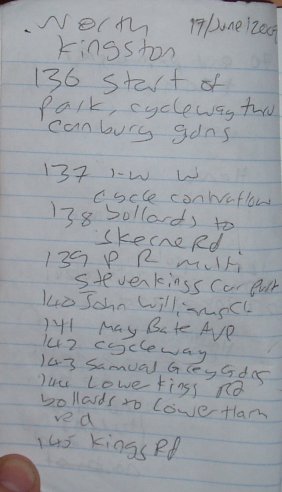 . North 17/June/2009
Kingston
136 start of
park, cycleway thru
canbury gdns
137 1-w w
cycle contraflow
138 bollards to
Skerne Rd
139 P R multi
Steven kings Car Park
140 John Williams Cl
141 May Bate Ave
142 cycleway
143 Samuel Grey Gdns
144 Lower Kings Rd
bollards to Lower Ham
rd
145 Kings Rd